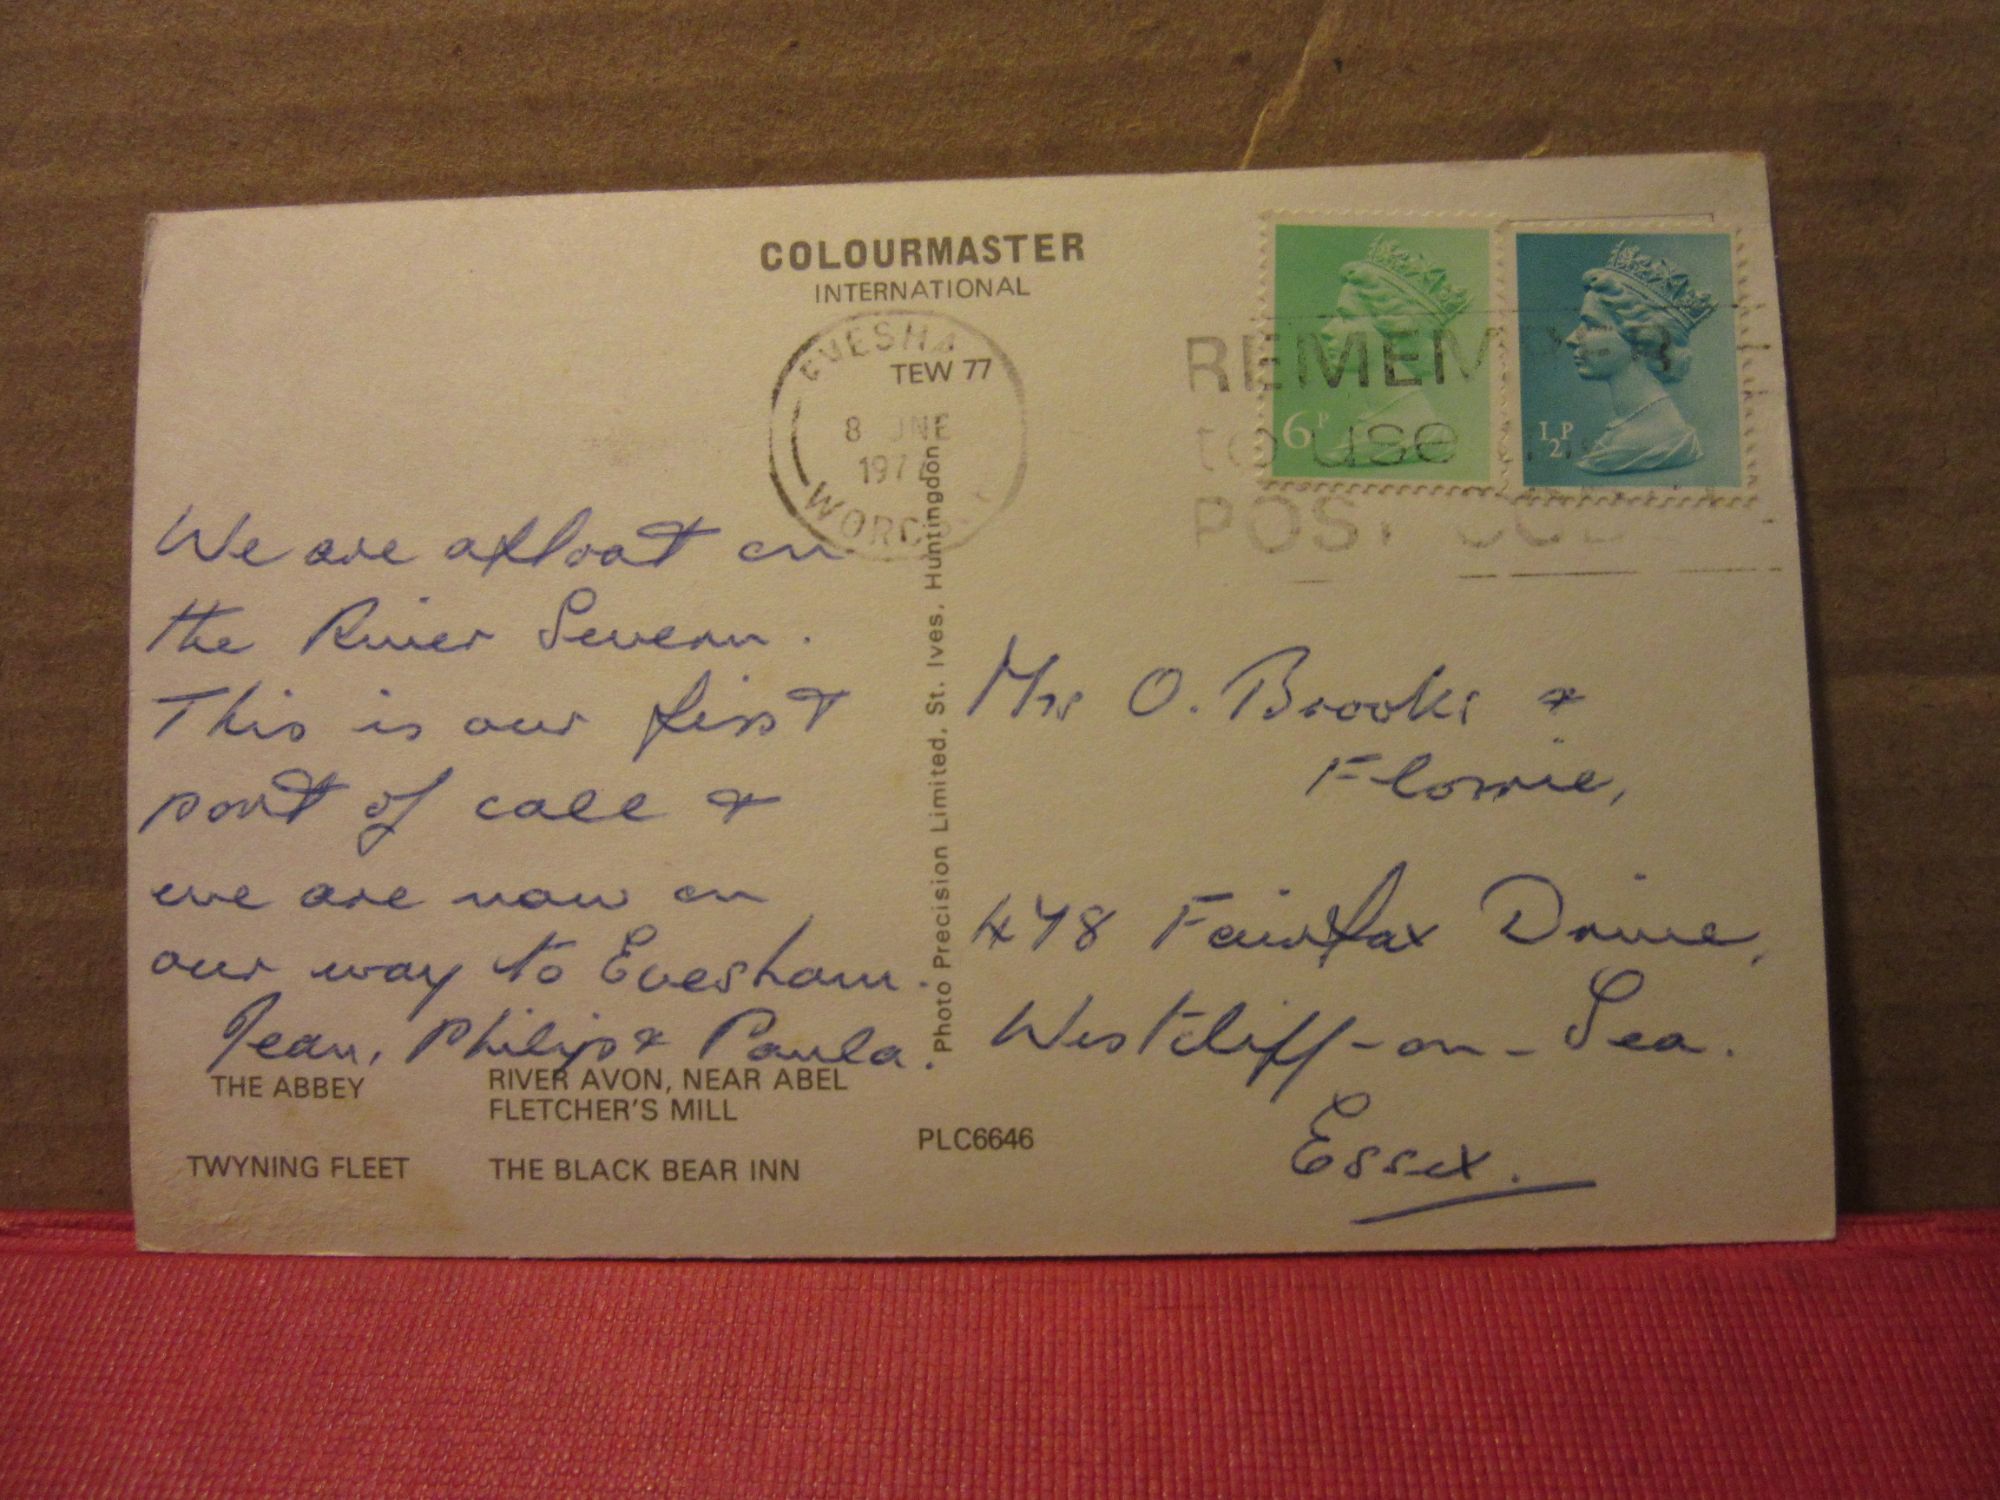 COLOURMASTER
INTERNATIONAL
EVESHA
TEW 77
8 JNE
197
WORC
REMEMBER
to use
POST
6P
½P
We are afloat on
the River Severn.
This is our first
port of call &
we are now on
our way to Evesham.
Jean, Philip & Paula.
Photo Precision Limited, St. Ives, Huntingdon
Mrs O. Brooks &
Florrie,
478 Fairfax Drive,
Westcliff-on-Sea.
Essex.
THE ABBEY
RIVER AVON, NEAR ABEL
FLETCHER'S MILL
TWYNING FLEET
THE BLACK BEAR INN
PLC6646